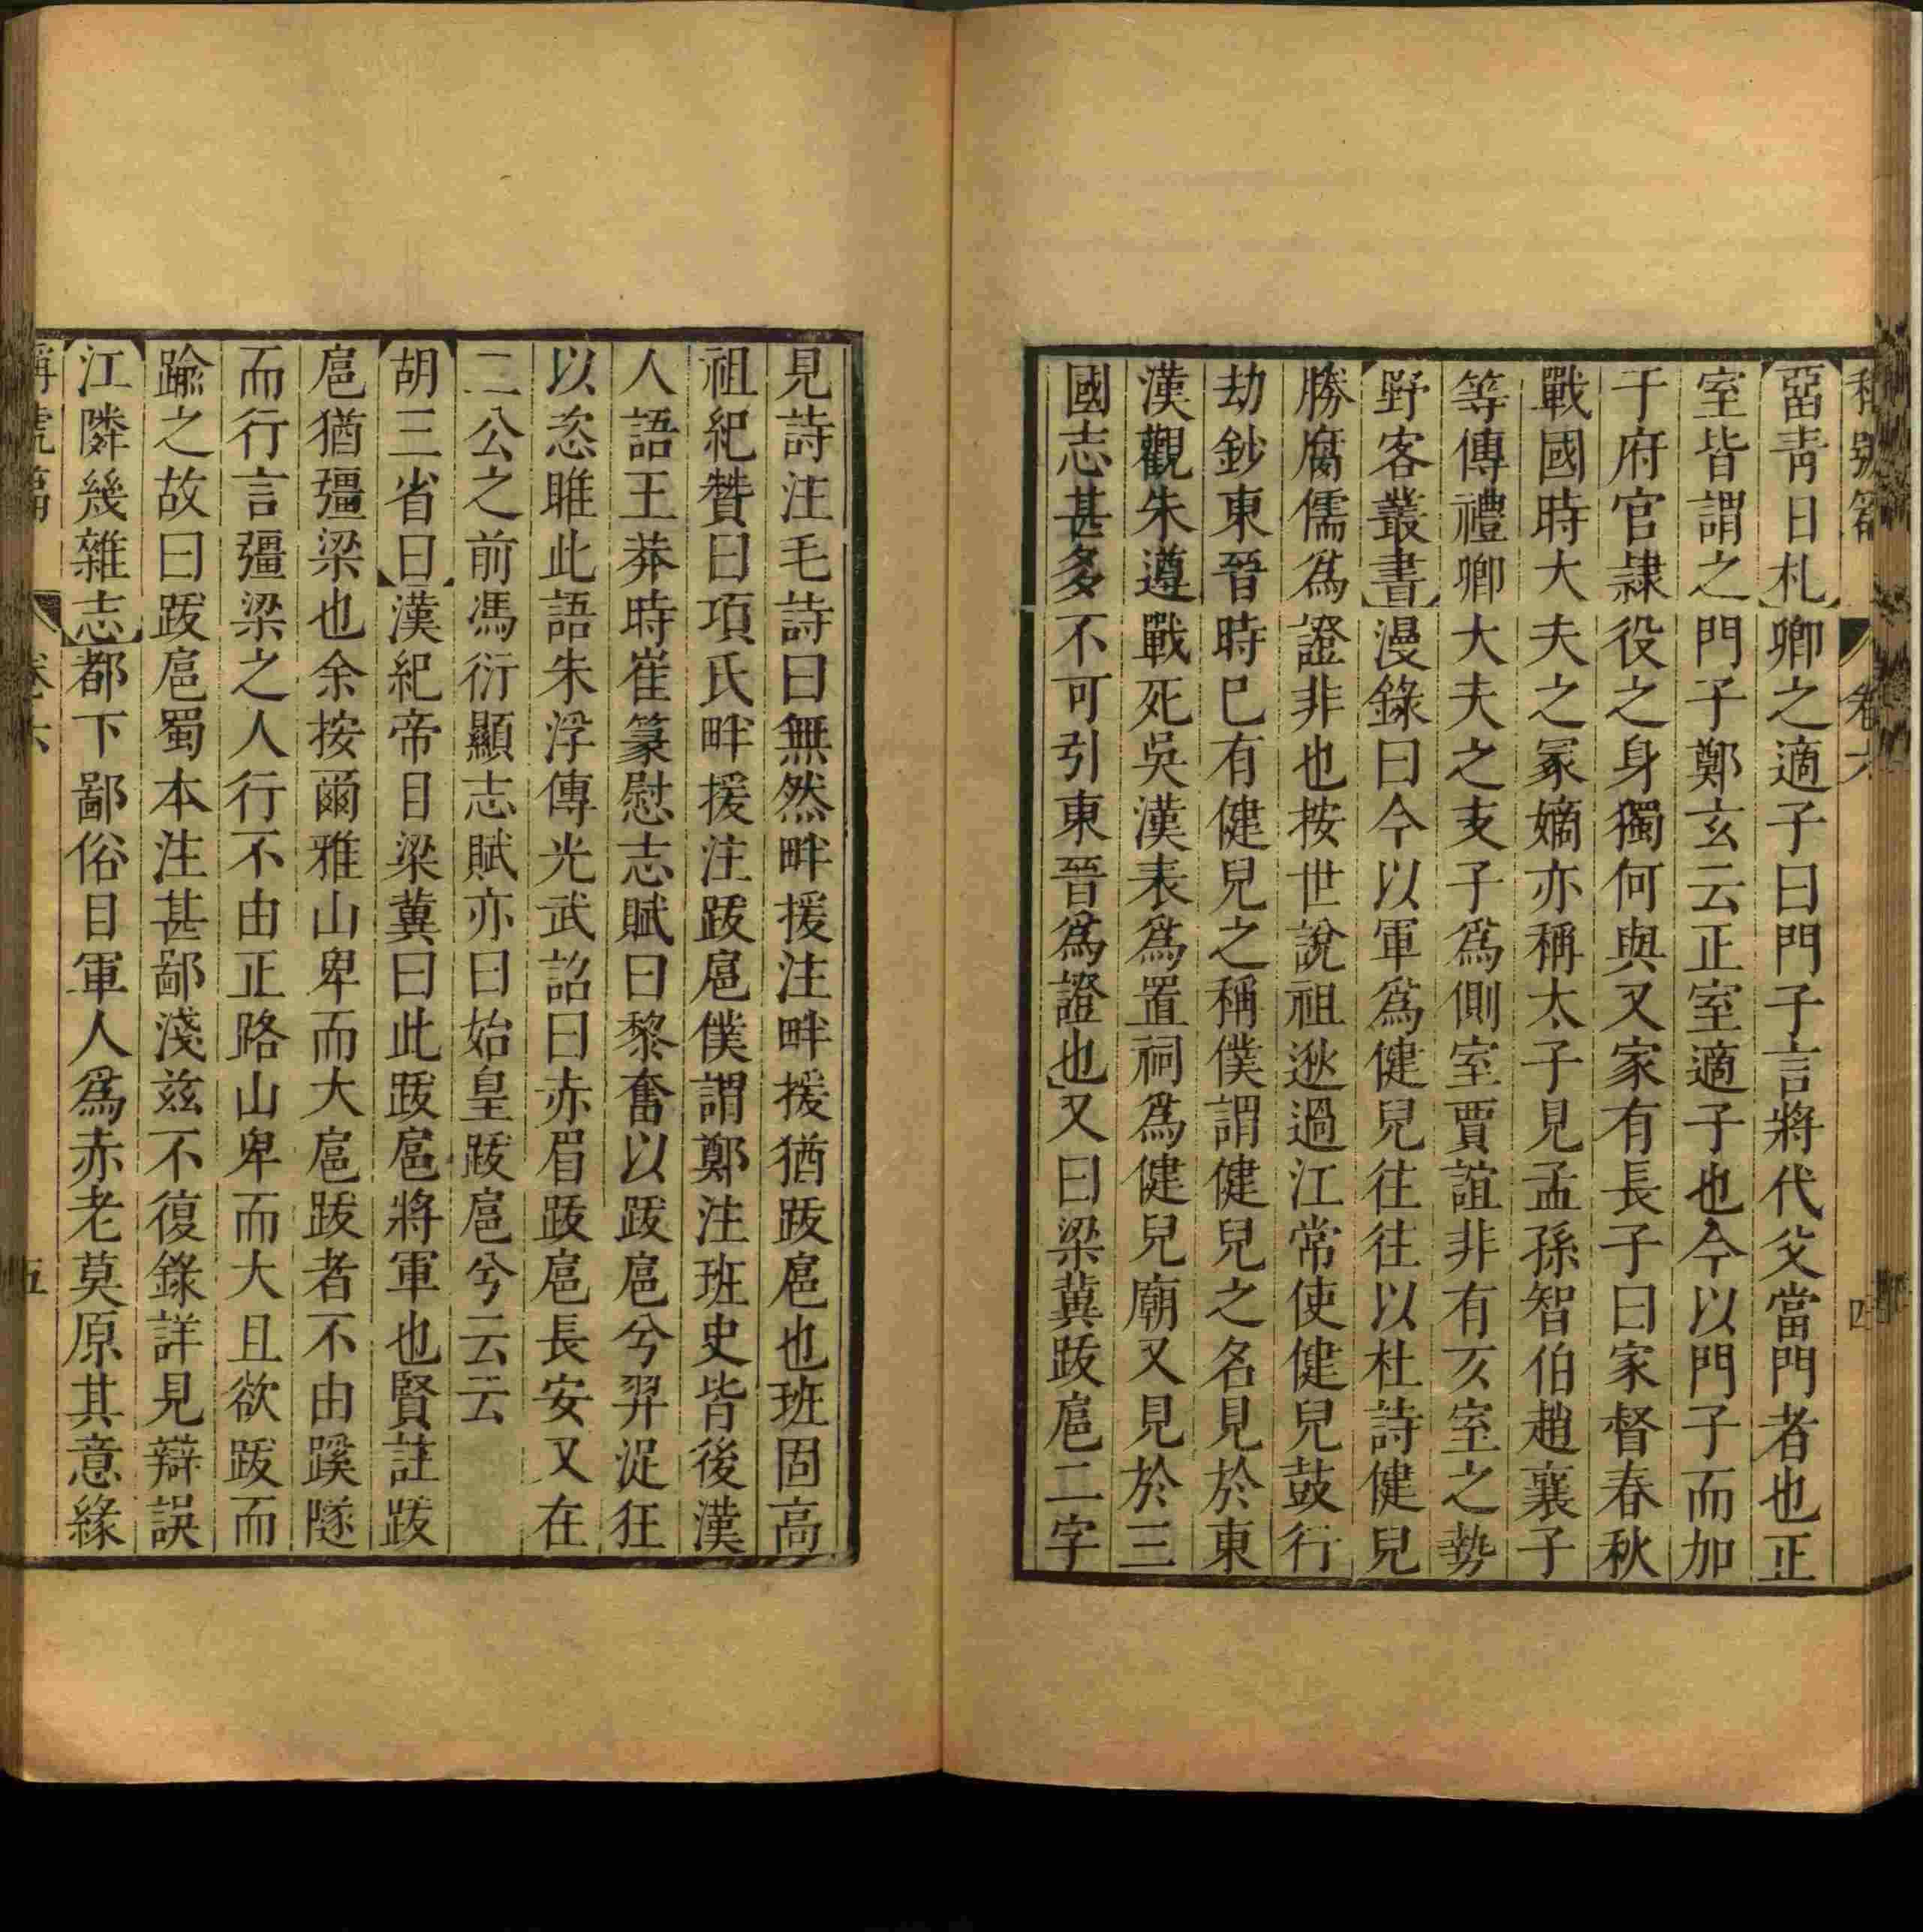 稱號篇 卷六 四
畱靑日札卿之適子曰門子言將代父當門者也正
室皆謂之門子鄭玄云正室適子也今以門子而加
于府官隷役之身獨何與又家有長子曰家督春秋
戰國時大夫之冢嫡亦稱太子見孟孫智伯趙襄子
等傳禮卿大夫之支子爲側室賈誼非有仄室之勢
野客叢書漫錄曰今以軍爲健兒往往以杜詩健兒
勝腐儒爲證非也按世說祖逖過江常使健兒鼓行
劫鈔東晉時已有健兒之稱僕謂健兒之名見於東
漢觀朱遵戰死吳漢表爲置祠爲健兒廟又見於三
國志甚多不可引東晉爲證也又曰梁冀跋扈二字
見詩注毛詩曰無然畔援注畔援猶跋扈也班固高
祖紀贊曰項氏畔援注跋扈僕謂鄭注班史皆後漢
人語王莽時崔篆慰志賦曰黎奮以跋扈兮羿浞狂
以恣睢此語朱浮傳光武詔曰赤眉跋扈長安又在
二公之前馮衍顯志賦亦曰始皇跋扈兮云云
胡三省曰漢紀帝目梁冀曰此跋扈將軍也賢註跋
扈猶彊梁也余按爾雅山卑而大扈跋者不由蹊隧
而行言彊梁之人行不由正路山卑而大且欲跋而
踰之故曰跋扈蜀本注甚鄙淺兹不復錄詳見辯誤
江隣幾雜志都下鄙俗目軍人爲赤老莫原其意緣
稱號篇 卷六 五